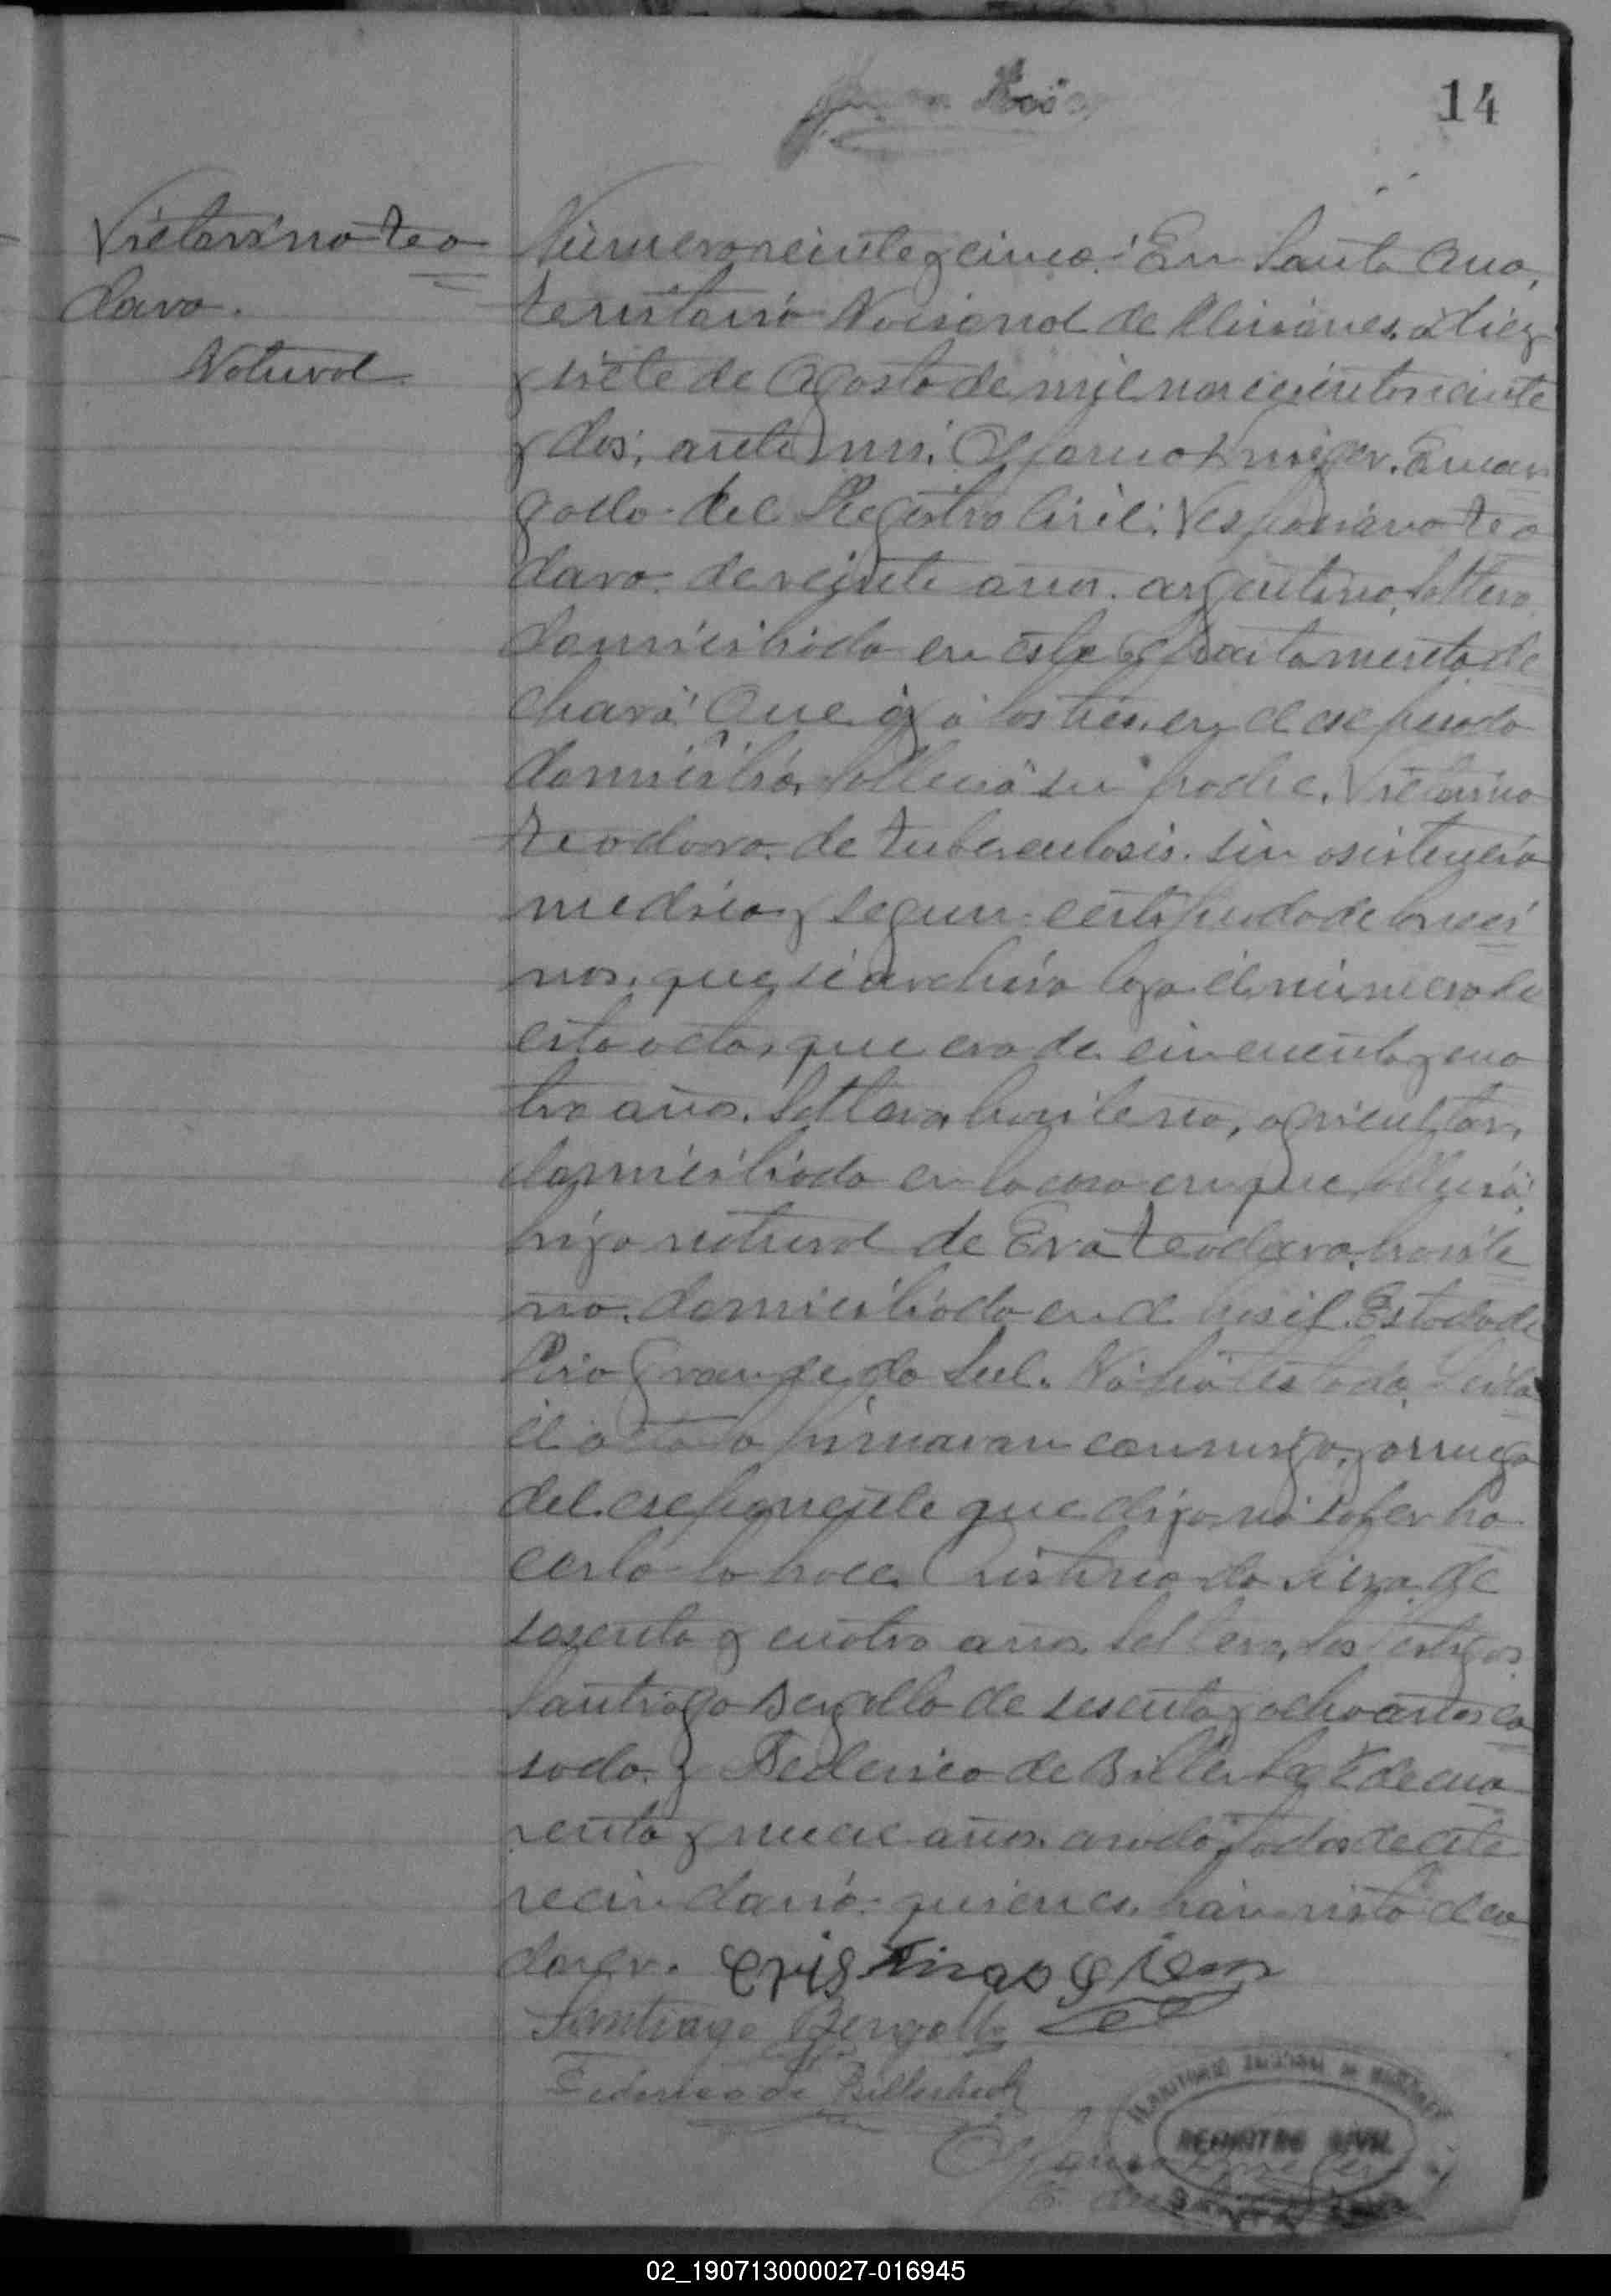 14
Victorino Teo
doro.
Natural
Número veinte y cinco: En Santa Ana,
territorio Nacional de Misiones, a diez
y siete de Agosto de mil novecientos veinte
y dos, ante mi, Encar
gado del Registro Civil: Vespaciano Teo
doro, de veinte años, argentino, soltero,
domiciliado en este departamento de
claró: Que a las tres, en el espresado
domicilio, falleció su padre, Victorino
Teodoro, de tuberculosis, sin asistencia
medica y segun certificado de los veci
nos, que se archiva bajo el número de
esta acta, que era de cincuenta y cua
tro años, soltero, brasilero, agricultor,
domiciliado en la casa en que falleció;
hijo natural de Eva Teodora, brasile
ra, domiciliada en el Brasil, Estado de
Rio Grande do Sul. No há testado. Leida
el acta la firmaron conmigo, y a ruego
del esponente que dijo no saber ha
cerlo lo hace, Cristino da de
sesenta y cuatro años, soltero, los testigos
Santiago Bergallo de sesenta y ocho años ca
sado, y Federico de Billerbeck de cua
renta y nueve años, todos de este
vecindario, quienes han visto el ca
daver.
Santiago Bergallo
Federico de Billerbeck
REGISTRO CIVIL
02_190713000027-016945